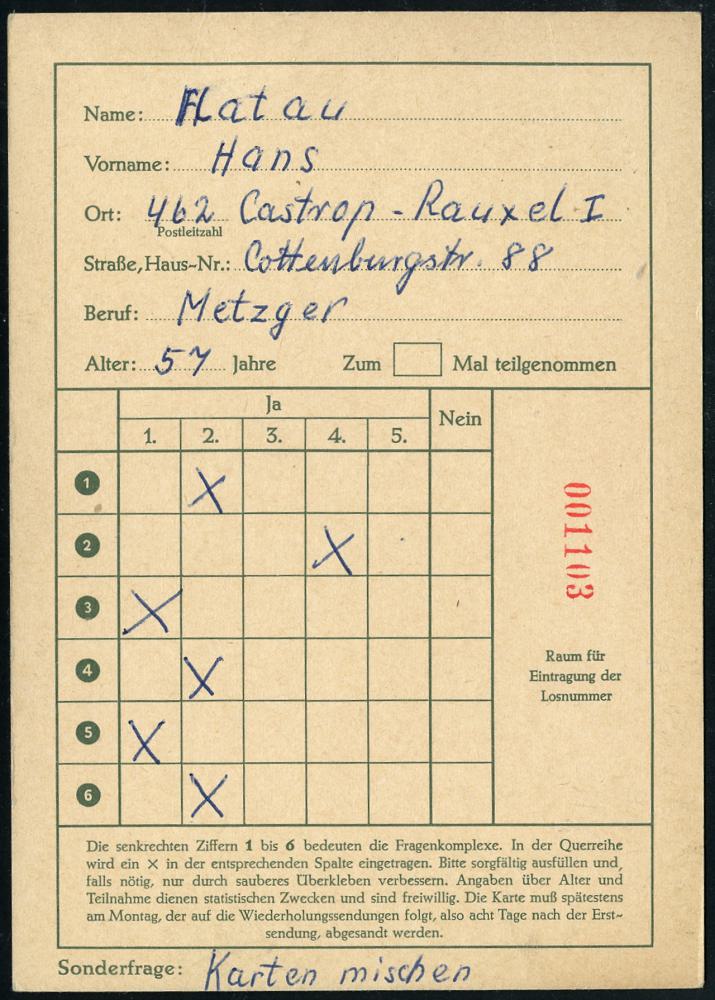 Name: Flatau
Vorname: Hans
Ort: 462 Castrop-Rauxel I
Postleitzahl
Straße, Haus-Nr.: Cottenburgstr. 88
Beruf: Metzger
Alter: 57 Jahre Zum Mal teilgenommen
Ja Nein
1. 2. 3. 4. 5.
1 X
2 X
3 X
4 X
5 X
6 X
001103
Raum für
Eintragung der
Losnummer
Die senkrechten Ziffern 1 bis 6 bedeuten die Fragenkomplexe. In der Querreihe
wird ein × in der entsprechenden Spalte eingetragen. Bitte sorgfältig ausfüllen und,
falls nötig, nur durch sauberes Überkleben verbessern. Angaben über Alter und
Teilnahme dienen statistischen Zwecken und sind freiwillig. Die Karte muß spätestens
am Montag, der auf die Wiederholungssendungen folgt, also acht Tage nach der Erst-
sendung, abgesandt werden.
Sonderfrage: Karten mischen